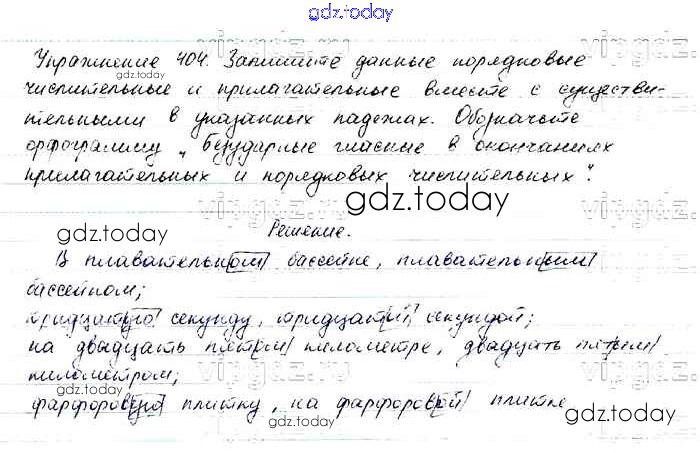 gdz.today
Упражнение 404. Запишите данные порядковые
числительные и прилагательные вместе с существи-
тельными в указанных падежах. Обозначьте
орфограмму „безударные гласные в окончаниях
прилагательных и порядковых числительных".
Решение.
В плавательном бассейне, плавательным
бассейном;
тридцатую секунду, тридцатой секундой;
на двадцать пятом километре, двадцать пятым
километром;
фарфоровую плитку, на фарфоровой плитке
gdz.today
gdz.today
gdz.today
gdz.today
gdz.today
gdz.today